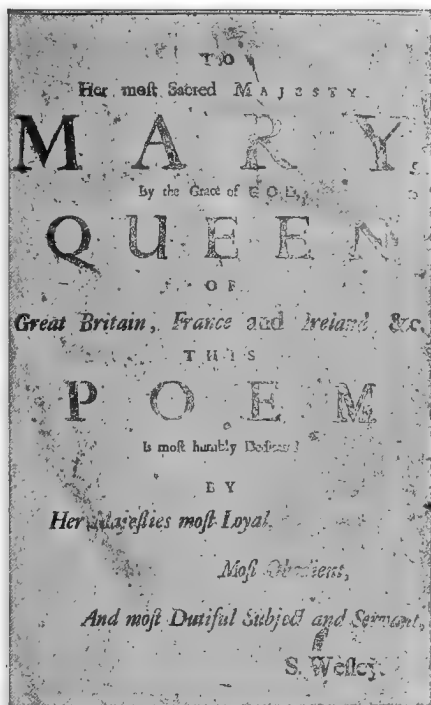 TO
Her moſt Sacred MAJESTY
MARY,
By the Grace of GOD,
QUEEN
OF
Great Britain, France and Ireland &c.
THIS
POEM
Is moſt humbly Dedicated
BY
Her Majeſties moſt Loyal,
Moſt Obedient,
And moſt Dutiful Subject and Servant,
S. Weſley.